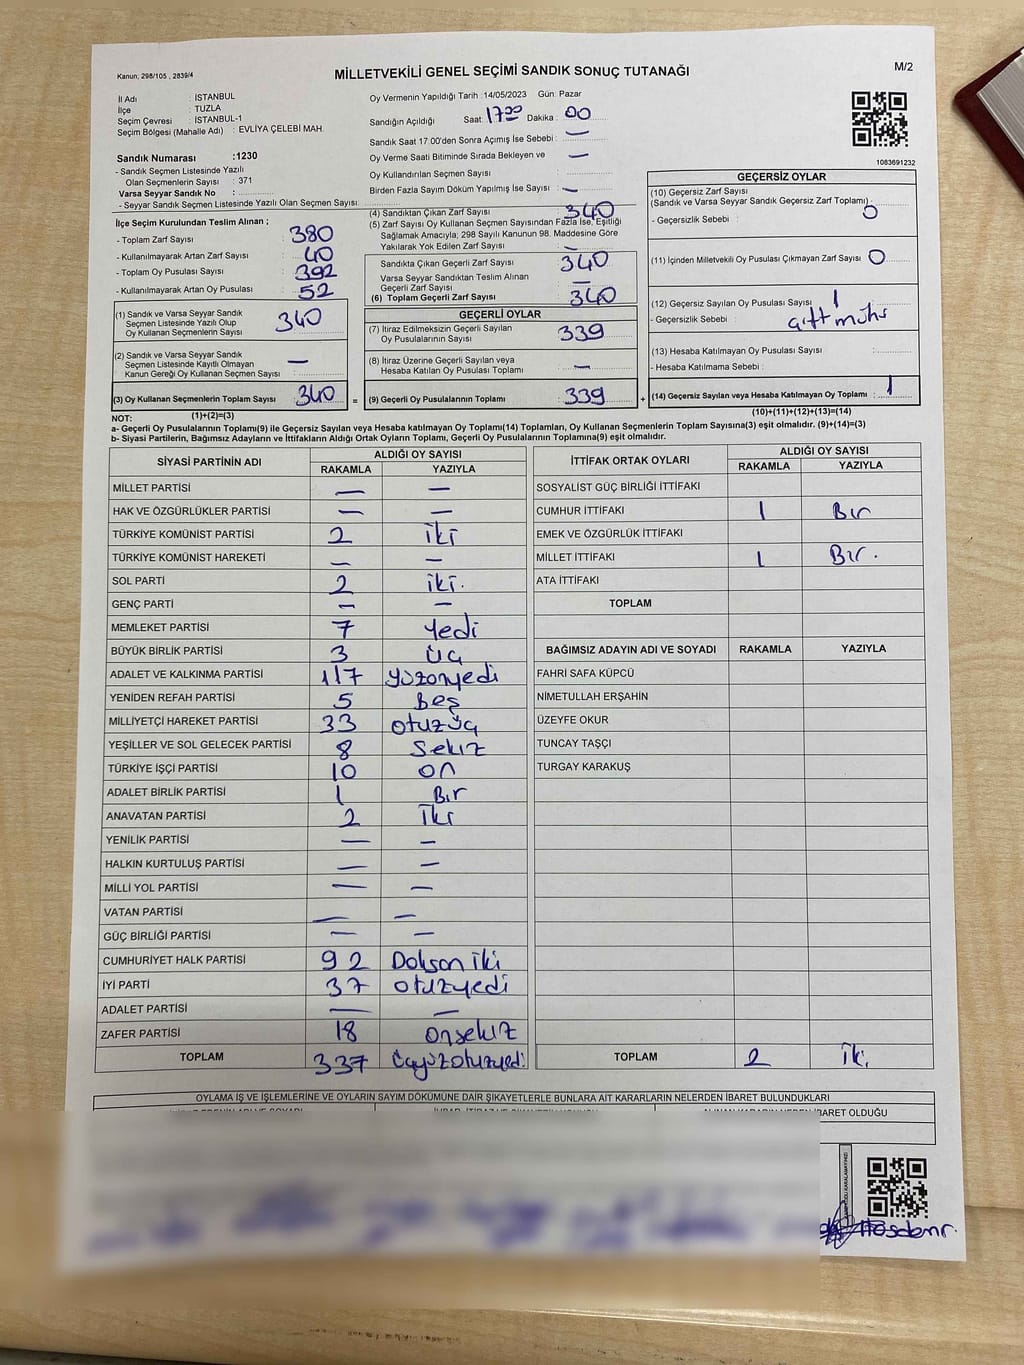 Kanun; 298/105 , 2839/4
MİLLETVEKİLİ GENEL SEÇİMİ SANDIK SONUÇ TUTANAĞI
M/2
İl Adı : İSTANBUL
İlçe : TUZLA
Seçim Çevresi : İSTANBUL-1
Seçim Bölgesi (Mahalle Adı) : EVLİYA ÇELEBİ MAH.
Sandık Numarası :1230
- Sandık Seçmen Listesinde Yazılı
Olan Seçmenlerin Sayısı : 371
Varsa Seyyar Sandık No :
- Seyyar Sandık Seçmen Listesinde Yazılı Olan Seçmen Sayısı.
Oy Vermenin Yapıldığı Tarih :14/05/2023 Gün: Pazar
Sandığın Açıldığı Saat: 17:00 Dakika : 00
Sandık Saat 17.00'den Sonra Açımış İse Sebebi : —
Oy Verme Saati Bitiminde Sırada Bekleyen ve —
Oy Kullandırılan Seçmen Sayısı :
Birden Fazla Sayım Döküm Yapılmış İse Sayısı : —
1083691232
İlçe Seçim Kurulundan Teslim Alınan ;
- Toplam Zarf Sayısı : 380
- Kullanılmayarak Artan Zarf Sayısı : 40
- Toplam Oy Pusulası Sayısı : 392
- Kullanılmayarak Artan Oy Pusulası : 52
(1) Sandık ve Varsa Seyyar Sandık
Seçmen Listesinde Yazılı Olup
Oy Kullanan Seçmenlerin Sayısı : 340
(2) Sandık ve Varsa Seyyar Sandık
Seçmen Listesinde Kayıtlı Olmayan
Kanun Gereği Oy Kullanan Seçmen Sayısı : —
(3) Oy Kullanan Seçmenlerin Toplam Sayısı : 340 =
(1)+(2)=(3)
(4) Sandıktan Çıkan Zarf Sayısı : 340
(5) Zarf Sayısı Oy Kullanan Seçmen Sayısından Fazla İse, Eşitliği
Sağlamak Amacıyla; 298 Sayılı Kanunun 98. Maddesine Göre
Yakılarak Yok Edilen Zarf Sayısı : —
Sandıkta Çıkan Geçerli Zarf Sayısı : 340
Varsa Seyyar Sandıktan Teslim Alınan
Geçerli Zarf Sayısı : —
(6) Toplam Geçerli Zarf Sayısı : 340
GEÇERLİ OYLAR
(7) İtiraz Edilmeksizin Geçerli Sayılan
Oy Pusulalarının Sayısı : 339
(8) İtiraz Üzerine Geçerli Sayılan veya
Hesaba Katılan Oy Pusulası Toplamı : —
(9) Geçerli Oy Pusulalarının Toplamı : 339 +
GEÇERSİZ OYLAR
(10) Geçersiz Zarf Sayısı
(Sandık ve Varsa Seyyar Sandık Geçersiz Zarf Toplamı) : 0
- Geçersizlik Sebebi :
(11) İçinden Milletvekili Oy Pusulası Çıkmayan Zarf Sayısı : 0
(12) Geçersiz Sayılan Oy Pusulası Sayısı : 1
- Geçersizlik Sebebi : çift mühr
(13) Hesaba Katılmayan Oy Pusulası Sayısı :
- Hesaba Katılmama Sebebi :
(14) Geçersiz Sayılan veya Hesaba Katılmayan Oy Toplamı : 1
(10)+(11)+(12)+(13)=(14)
NOT:
a- Geçerli Oy Pusulalarının Toplamı(9) ile Geçersiz Sayılan veya Hesaba katılmayan Oy Toplamı(14) Toplamları, Oy Kullanan Seçmenlerin Toplam Sayısına(3) eşit olmalıdır. (9)+(14)=(3)
b- Siyasi Partilerin, Bağımsız Adayların ve İttifakların Aldığı Ortak Oyların Toplamı, Geçerli Oy Pusulalarının Toplamına(9) eşit olmalıdır.
SİYASİ PARTİNİN ADI ALDIĞI OY SAYISI
RAKAMLA YAZIYLA
MİLLET PARTİSİ — —
HAK VE ÖZGÜRLÜKLER PARTİSİ — —
TÜRKİYE KOMÜNİST PARTİSİ 2 iki
TÜRKİYE KOMÜNİST HAREKETİ — —
SOL PARTİ 2 iki.
GENÇ PARTİ — —
MEMLEKET PARTİSİ 7 Yedi
BÜYÜK BİRLİK PARTİSİ 3 Üç
ADALET VE KALKINMA PARTİSİ 117 Yüzonyedi
YENİDEN REFAH PARTİSİ 5 Beş
MİLLİYETÇİ HAREKET PARTİSİ 33 otuzüç
YEŞİLLER VE SOL GELECEK PARTİSİ 8 Sekız
TÜRKİYE İŞÇİ PARTİSİ 10 on
ADALET BİRLİK PARTİSİ 1 Bır
ANAVATAN PARTİSİ 2 İki
YENİLİK PARTİSİ — —
HALKIN KURTULUŞ PARTİSİ — —
MİLLİ YOL PARTİSİ — —
VATAN PARTİSİ — —
GÜÇ BİRLİĞİ PARTİSİ — —
CUMHURİYET HALK PARTİSİ 92 Doksan iki
İYİ PARTİ 37 otuzyedi
ADALET PARTİSİ — —
ZAFER PARTİSİ 18 onsekız
TOPLAM 337 üçyüzotuzyedi
İTTİFAK ORTAK OYLARI ALDIĞI OY SAYISI
RAKAMLA YAZIYLA
SOSYALİST GÜÇ BİRLİĞİ İTTİFAKI
CUMHUR İTTİFAKI 1 Bır
EMEK VE ÖZGÜRLÜK İTTİFAKI
MİLLET İTTİFAKI 1 Bır.
ATA İTTİFAKI
TOPLAM
BAĞIMSIZ ADAYIN ADI VE SOYADI RAKAMLA YAZIYLA
FAHRİ SAFA KÜPCÜ
NİMETULLAH ERŞAHİN
ÜZEYFE OKUR
TUNCAY TAŞÇI
TURGAY KARAKUŞ
TOPLAM 2 İki
OYLAMA İŞ VE İŞLEMLERİNE VE OYLARIN SAYIM DÖKÜMÜNE DAİR ŞİKAYETLERLE BUNLARA AİT KARARLARIN NELERDEN İBARET BULUNDUKLARI
ALINAN KARARIN NEDEN İBARET OLDUĞU